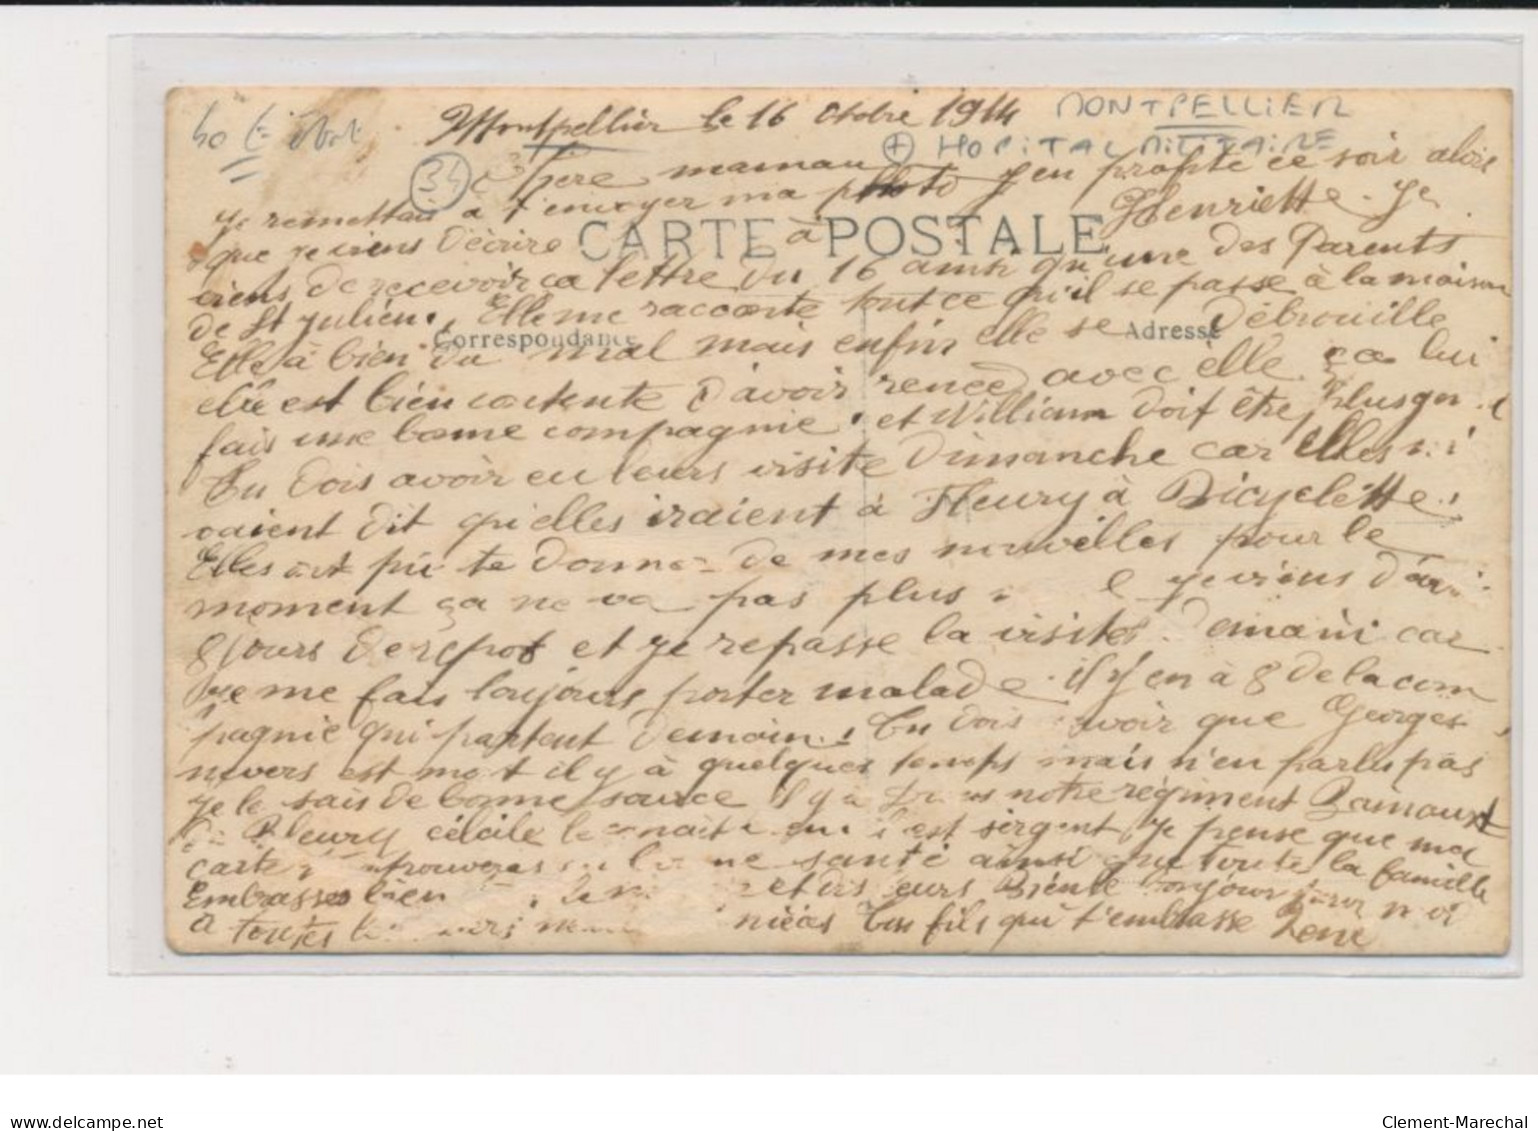 40 €
Montpellier le 16 Octobre 1914 MONTPELLIER
+ HOPITAL MILITAIRE
34
Chere maman j'en profite ce soir alors
je remettais a t'envoyer ma photo
que je viens d'écrire à Henriette. Je
CARTE POSTALE
viens de recevoir ca lettre du 16 ainsi qu'une des Parents
de St Julien. Elle me raconte tout ce qu'il se passe à la maison
Correspondance
Adresse
Elle à bien du mal mais enfin elle se débrouille
elle est bien contente d'avoir renée avec elle ça lui
fais une bonne compagnie. et William doit être plus
Tu dois avoir eu leurs visite Dimanche car elles m'a
vaient dit qu'elles iraient à Fleury à Bicyclette.
Elles ont pu te donner de mes nouvelles pour le
moment ça ne va pas plus je viens d'avoir
8 jours de repos et je repasse la visite demain car
je me fais toujours porter malade. il y en à 8 de la com
pagnie qui partent demain. Tu dois savoir que Georges
nevers est mort il y à quelques temps mais n'en parle pas
je le sais de bonne source il y a dans notre régiment
de Fleury cécile le connait il est sergent je pense que ma
carte trouveras en bonne santé ainsi que toute la famille
Embrasses bien et dis leurs Bientot bonjour pour moi
a toutes nièces ton fils qui t'embrasse René
www.delcampe.net
Clement-Marechal